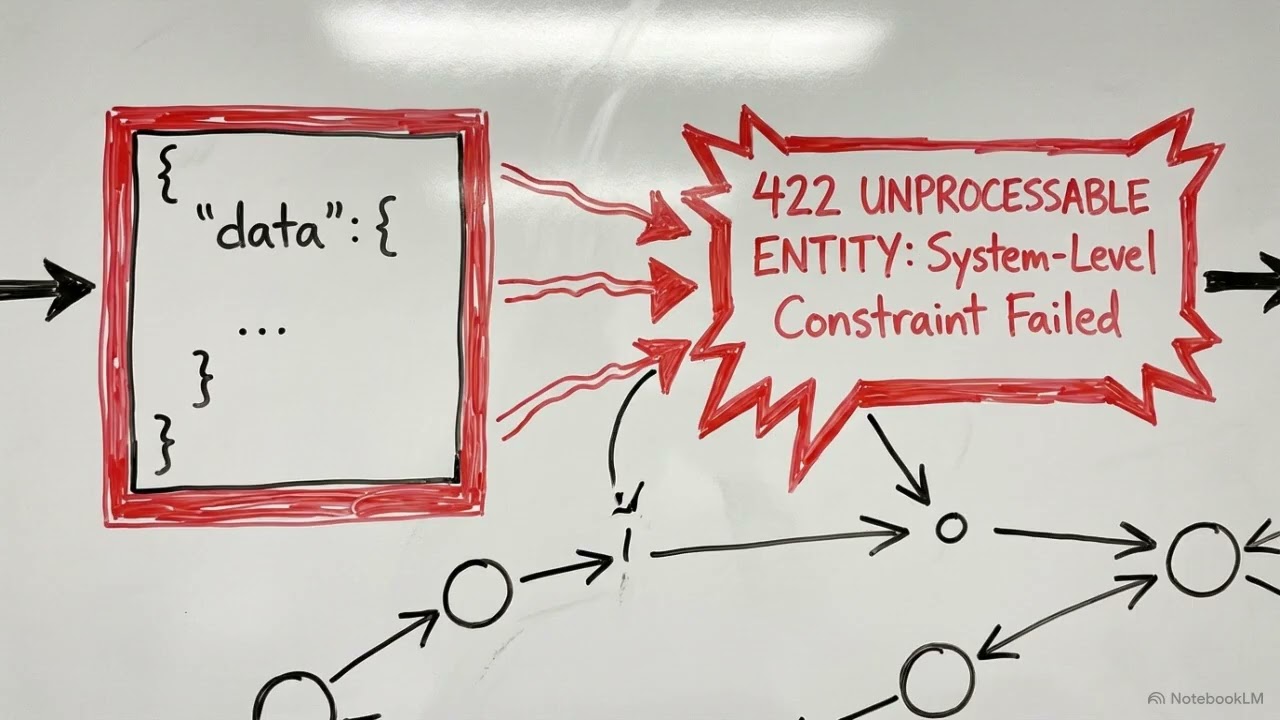 {
"data": {
...
}
}
422 UNPROCESSABLE
ENTITY: System-Level
Constraint Failed
NotebookLM